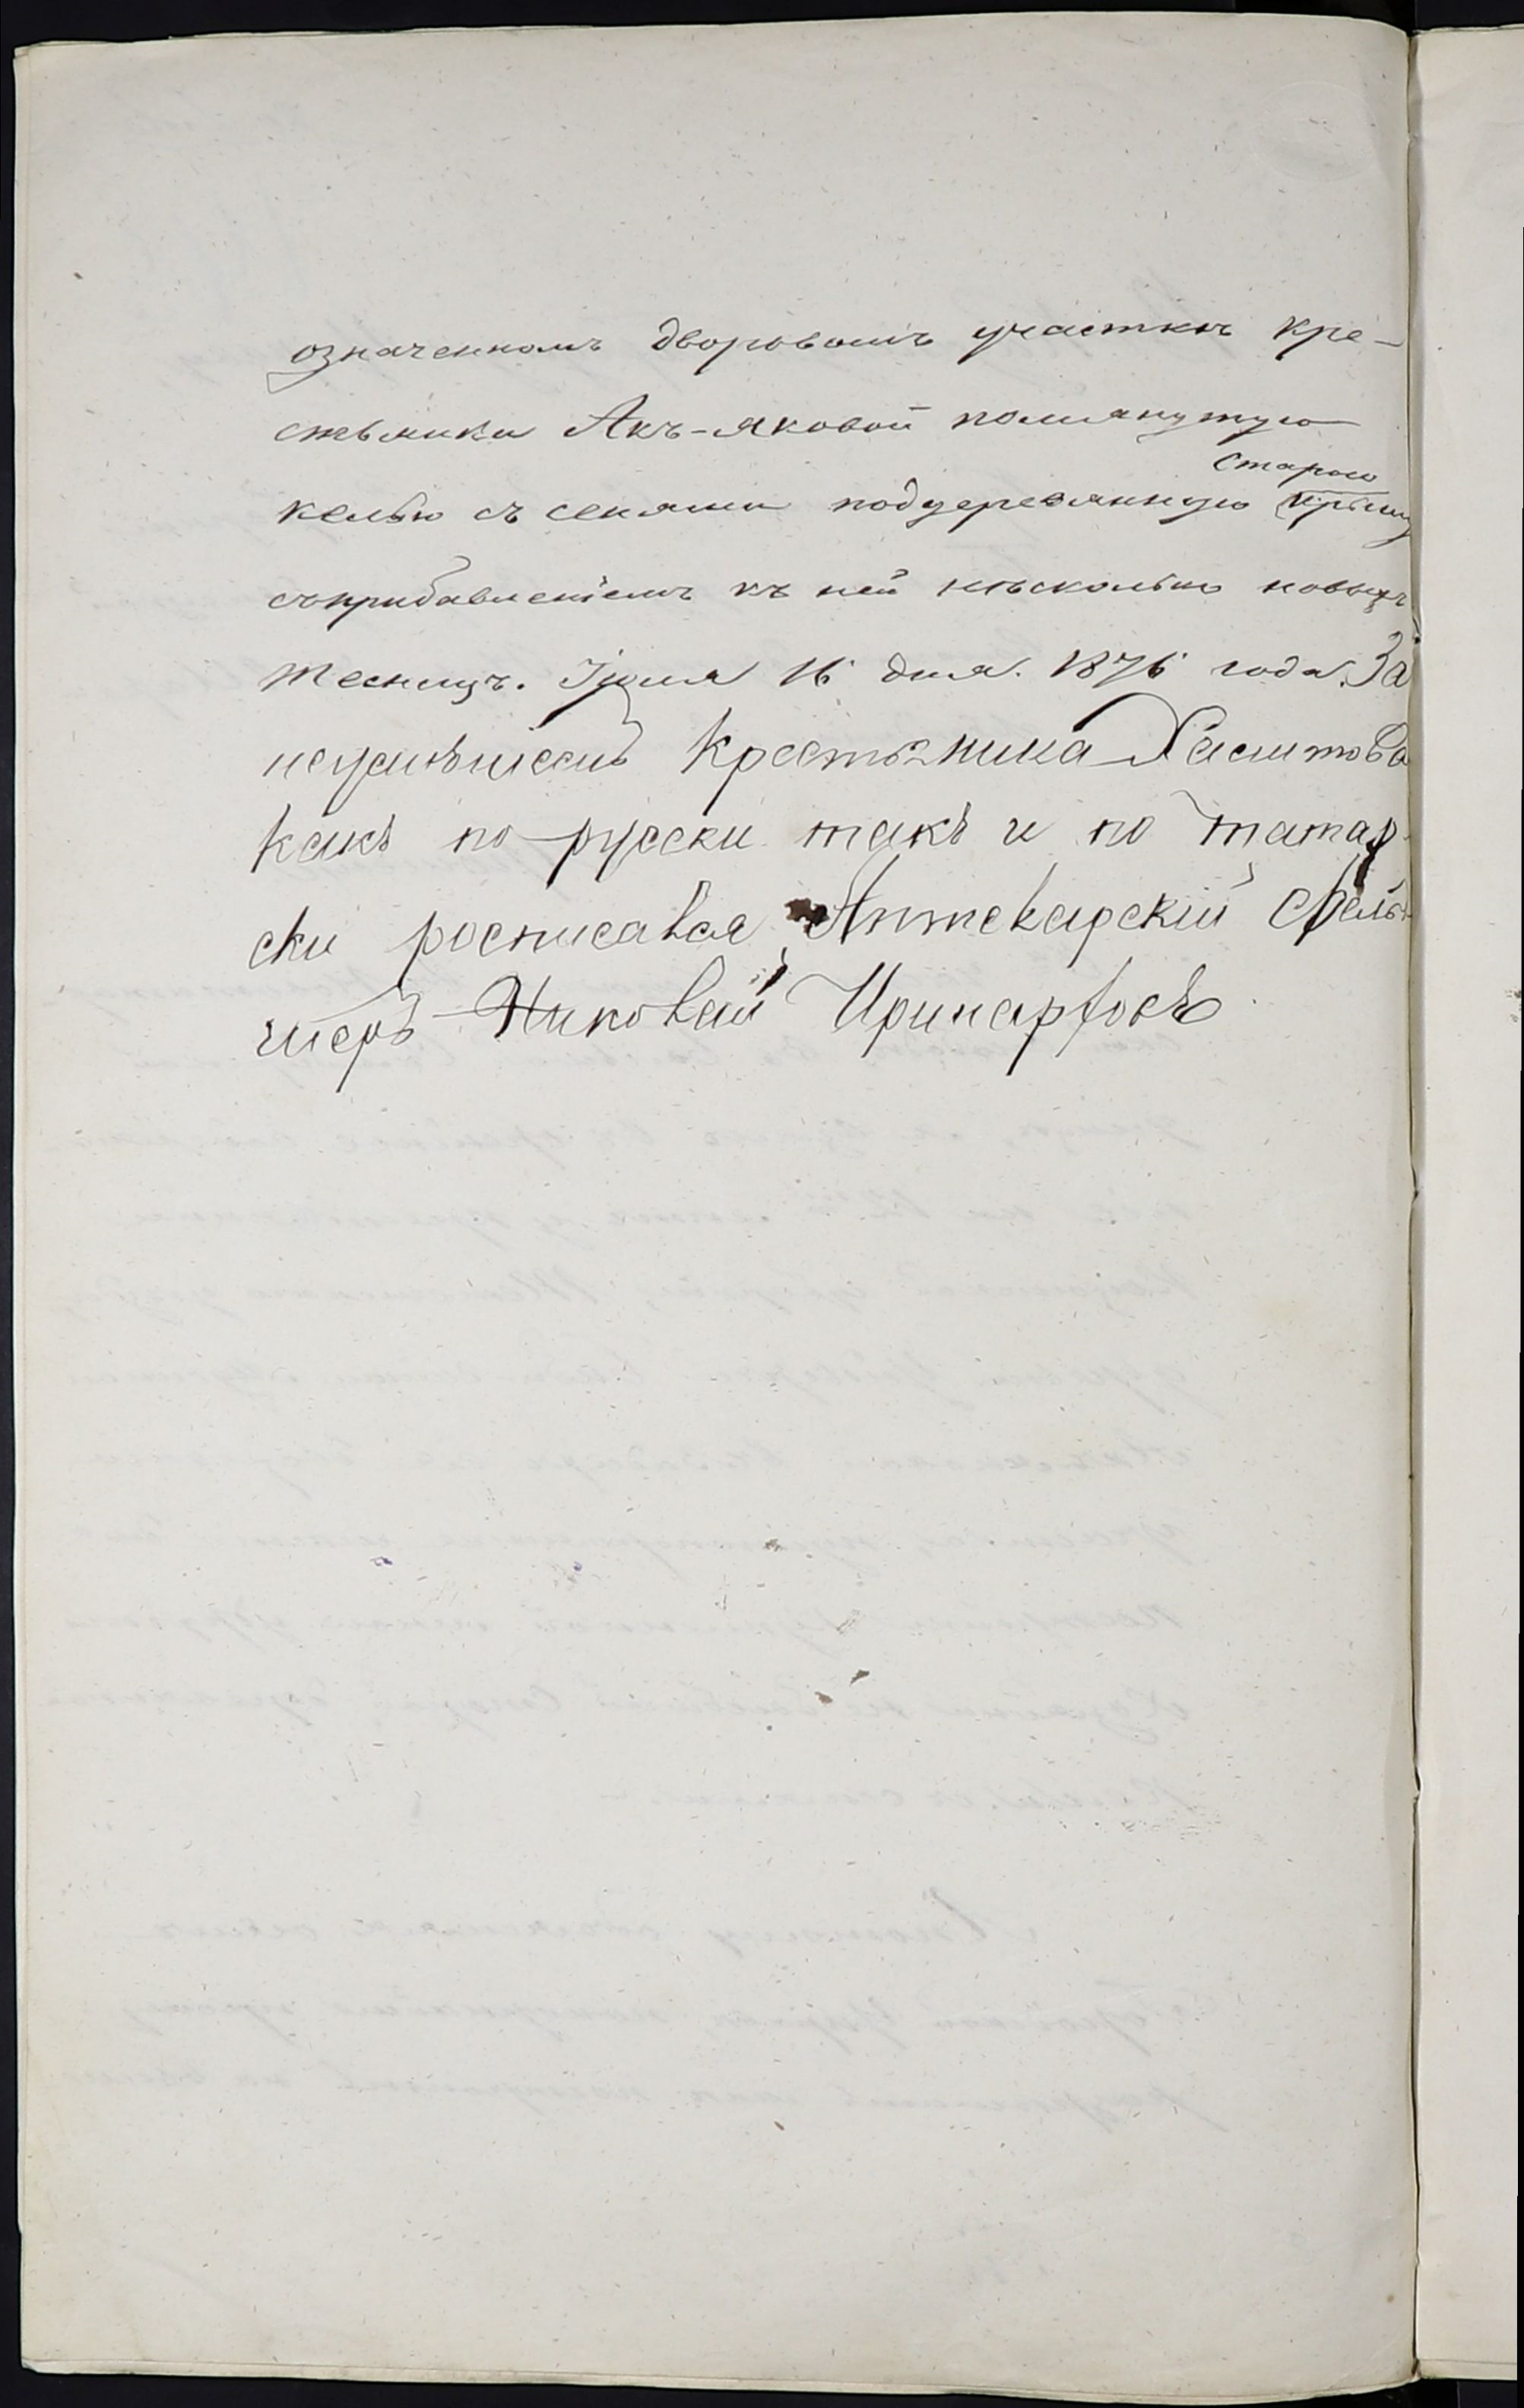 означенномъ дворовомъ участкѣ кре-
стьянки Акъ-яковой помянутую
Старою
келью съ сенями подъ деревянную крышу
съ прибавленіемъ къ ней нѣсколько новыхъ
тесницъ. Іюля 16 дня. 1876 года. За
неумѣніемъ крестьянина Хаситова
какъ по-русски такъ и по татар-
ски росписался Аптекарскій фель-
шеръ Николай Иринарховъ